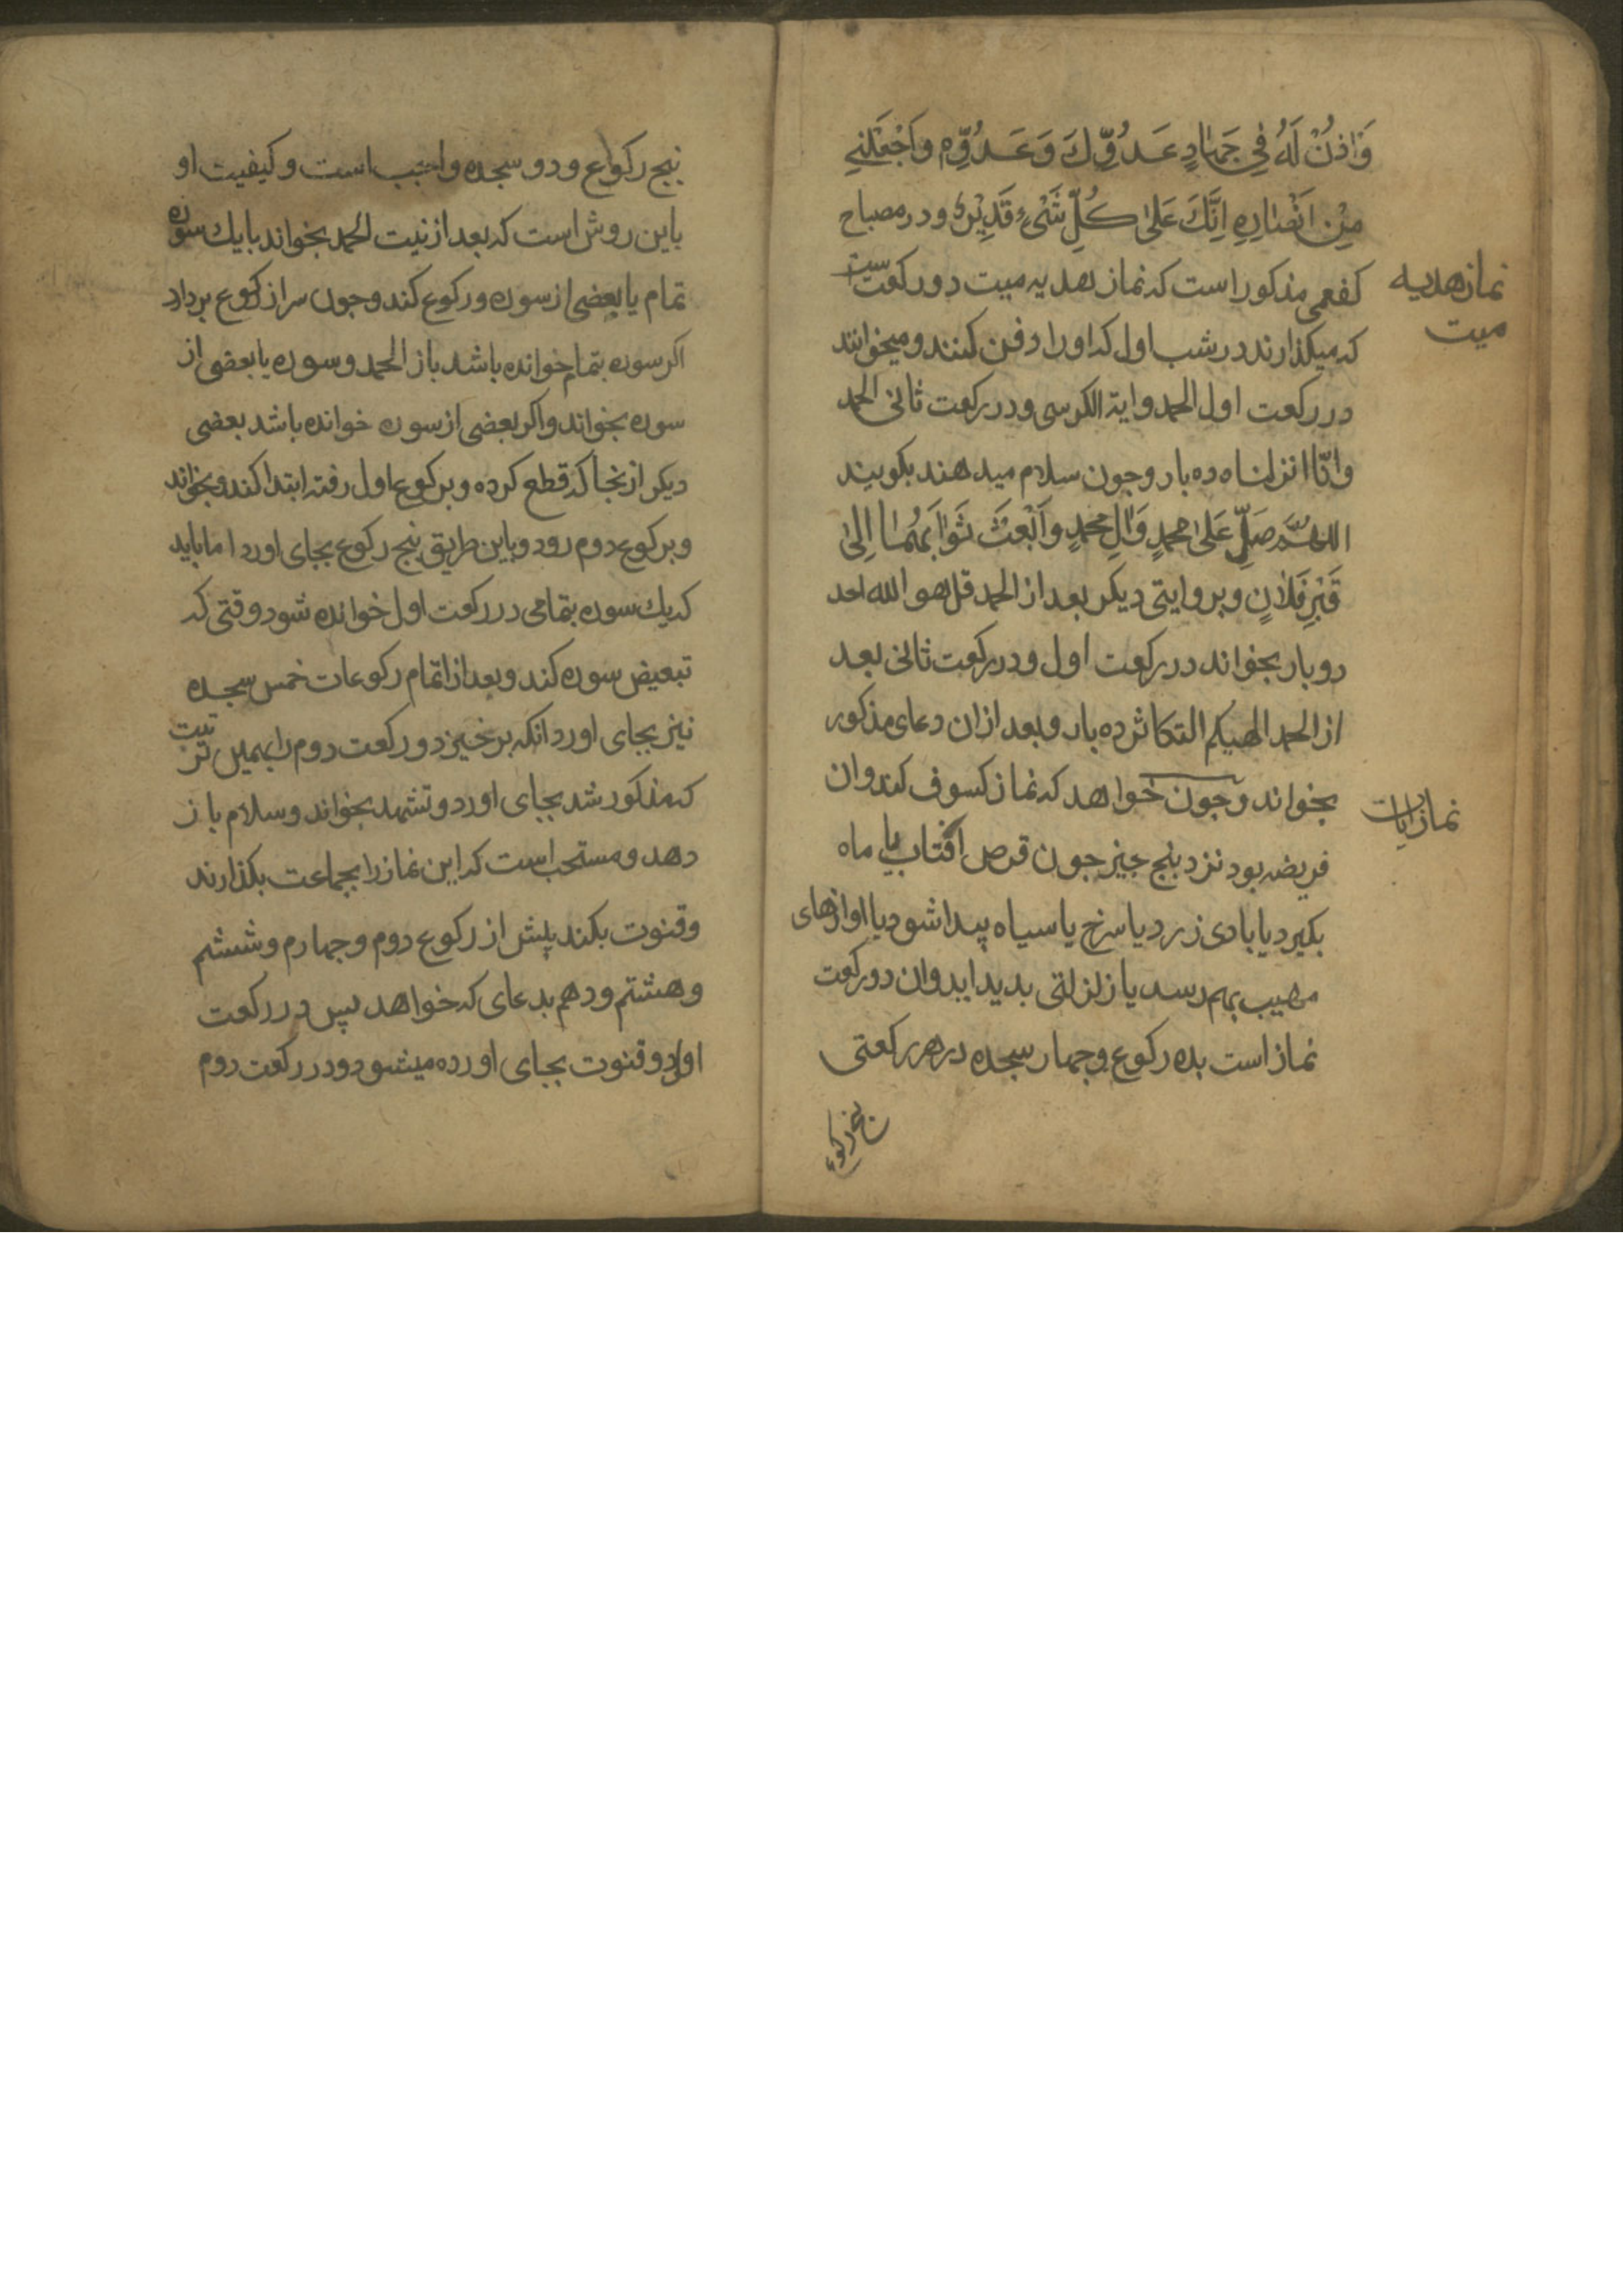 وَاْذَنْ لَهُ فِي جَهٰادِ عَدُوِّكَ وَعَدُوِّهِ وَاجْعَلْنِي
مِنْ اَنْصٰارِهِ اِنَّكَ عَلیٰ كُلِّ شَيْءٍ قَدِيْرٌ و در مصباح
كفعمی مذكور است كه نماز هديه ميت دو ركعت ست
نماز هديه
ميت
كه ميكذارند در شب اول كه او را دفن كنند و ميخوانند
در ركعت اول الحمد و اية الكرسی و در ركعت ثانی الحمد
و انّا انزلناه ده بار و جون سلام ميدهند بكويند
اللهُمَّ صَلِّ عَلیٰ محمدٍ وَاٰلِ محمدٍ وَابْعَثْ ثَوٰابَهُمٰا اِلیٰ
قَبْرِ فَلاٰنٍ و بروايتی ديكر بعد از الحمد قل هو الله احد
دو بار بخواند در ركعت اول و در ركعت ثانی بعد
از الحمد الهيكم التكاثر ده بار و بعد از ان دعای مذكور
بخواند و جون خواهد كه نماز كسوف كند و ان
نماز ايات
فريضه بود نزد بنج جيز جون قرص افتاب يا ماه
بكيرد يا بادی زرد يا سرخ يا سياه پيدا شود يا اوازهای
مهيب بهم رسد يا زلزلتی بديد ايد و ان دو ركعت
نماز است بده ركوع و جهار سجده در هر ركعتی
پنج ركوع
پنج ركوع و دو سجده واجب است و كيفيت او
باين روش است كه بعد از نيت الحمد بخواند با يك سوره
تمام يا بعضی از سوره و ركوع كند و جون سر از ركوع بردارد
اكر سوره بتمام خوانده باشد باز الحمد و سوره يا بعضی از
سوره بخواند و اكر بعضی از سوره خوانده باشد بعضی
ديكر از نجا كه قطع كرده و بركوع اول رفته ابتدا كند و بخواند
و بركوع دوم رود و باين طريق پنج ركوع بجای اورد اما بايد
كه يك سوره بتمامی در ركعت اول خوانده شود وقتی كه
تبعيض سوره كند و بعد از اتمام ركوعات خمس سجده
نيز بجای اورد انكه برخيزد و ركعت دوم را بهمين ترتيب
كه مذكور شد بجای اورد و تشهد بخواند و سلام باز
دهد و مستحب است كه اين نماز را بجماعت بكذارند
و قنوت بكند پيش از ركوع دوم و جهارم و ششم
و هشتم و دهم بدعای كه خواهد پس در ركعت
اول دو قنوت بجای اورده ميشود و در ركعت دوم